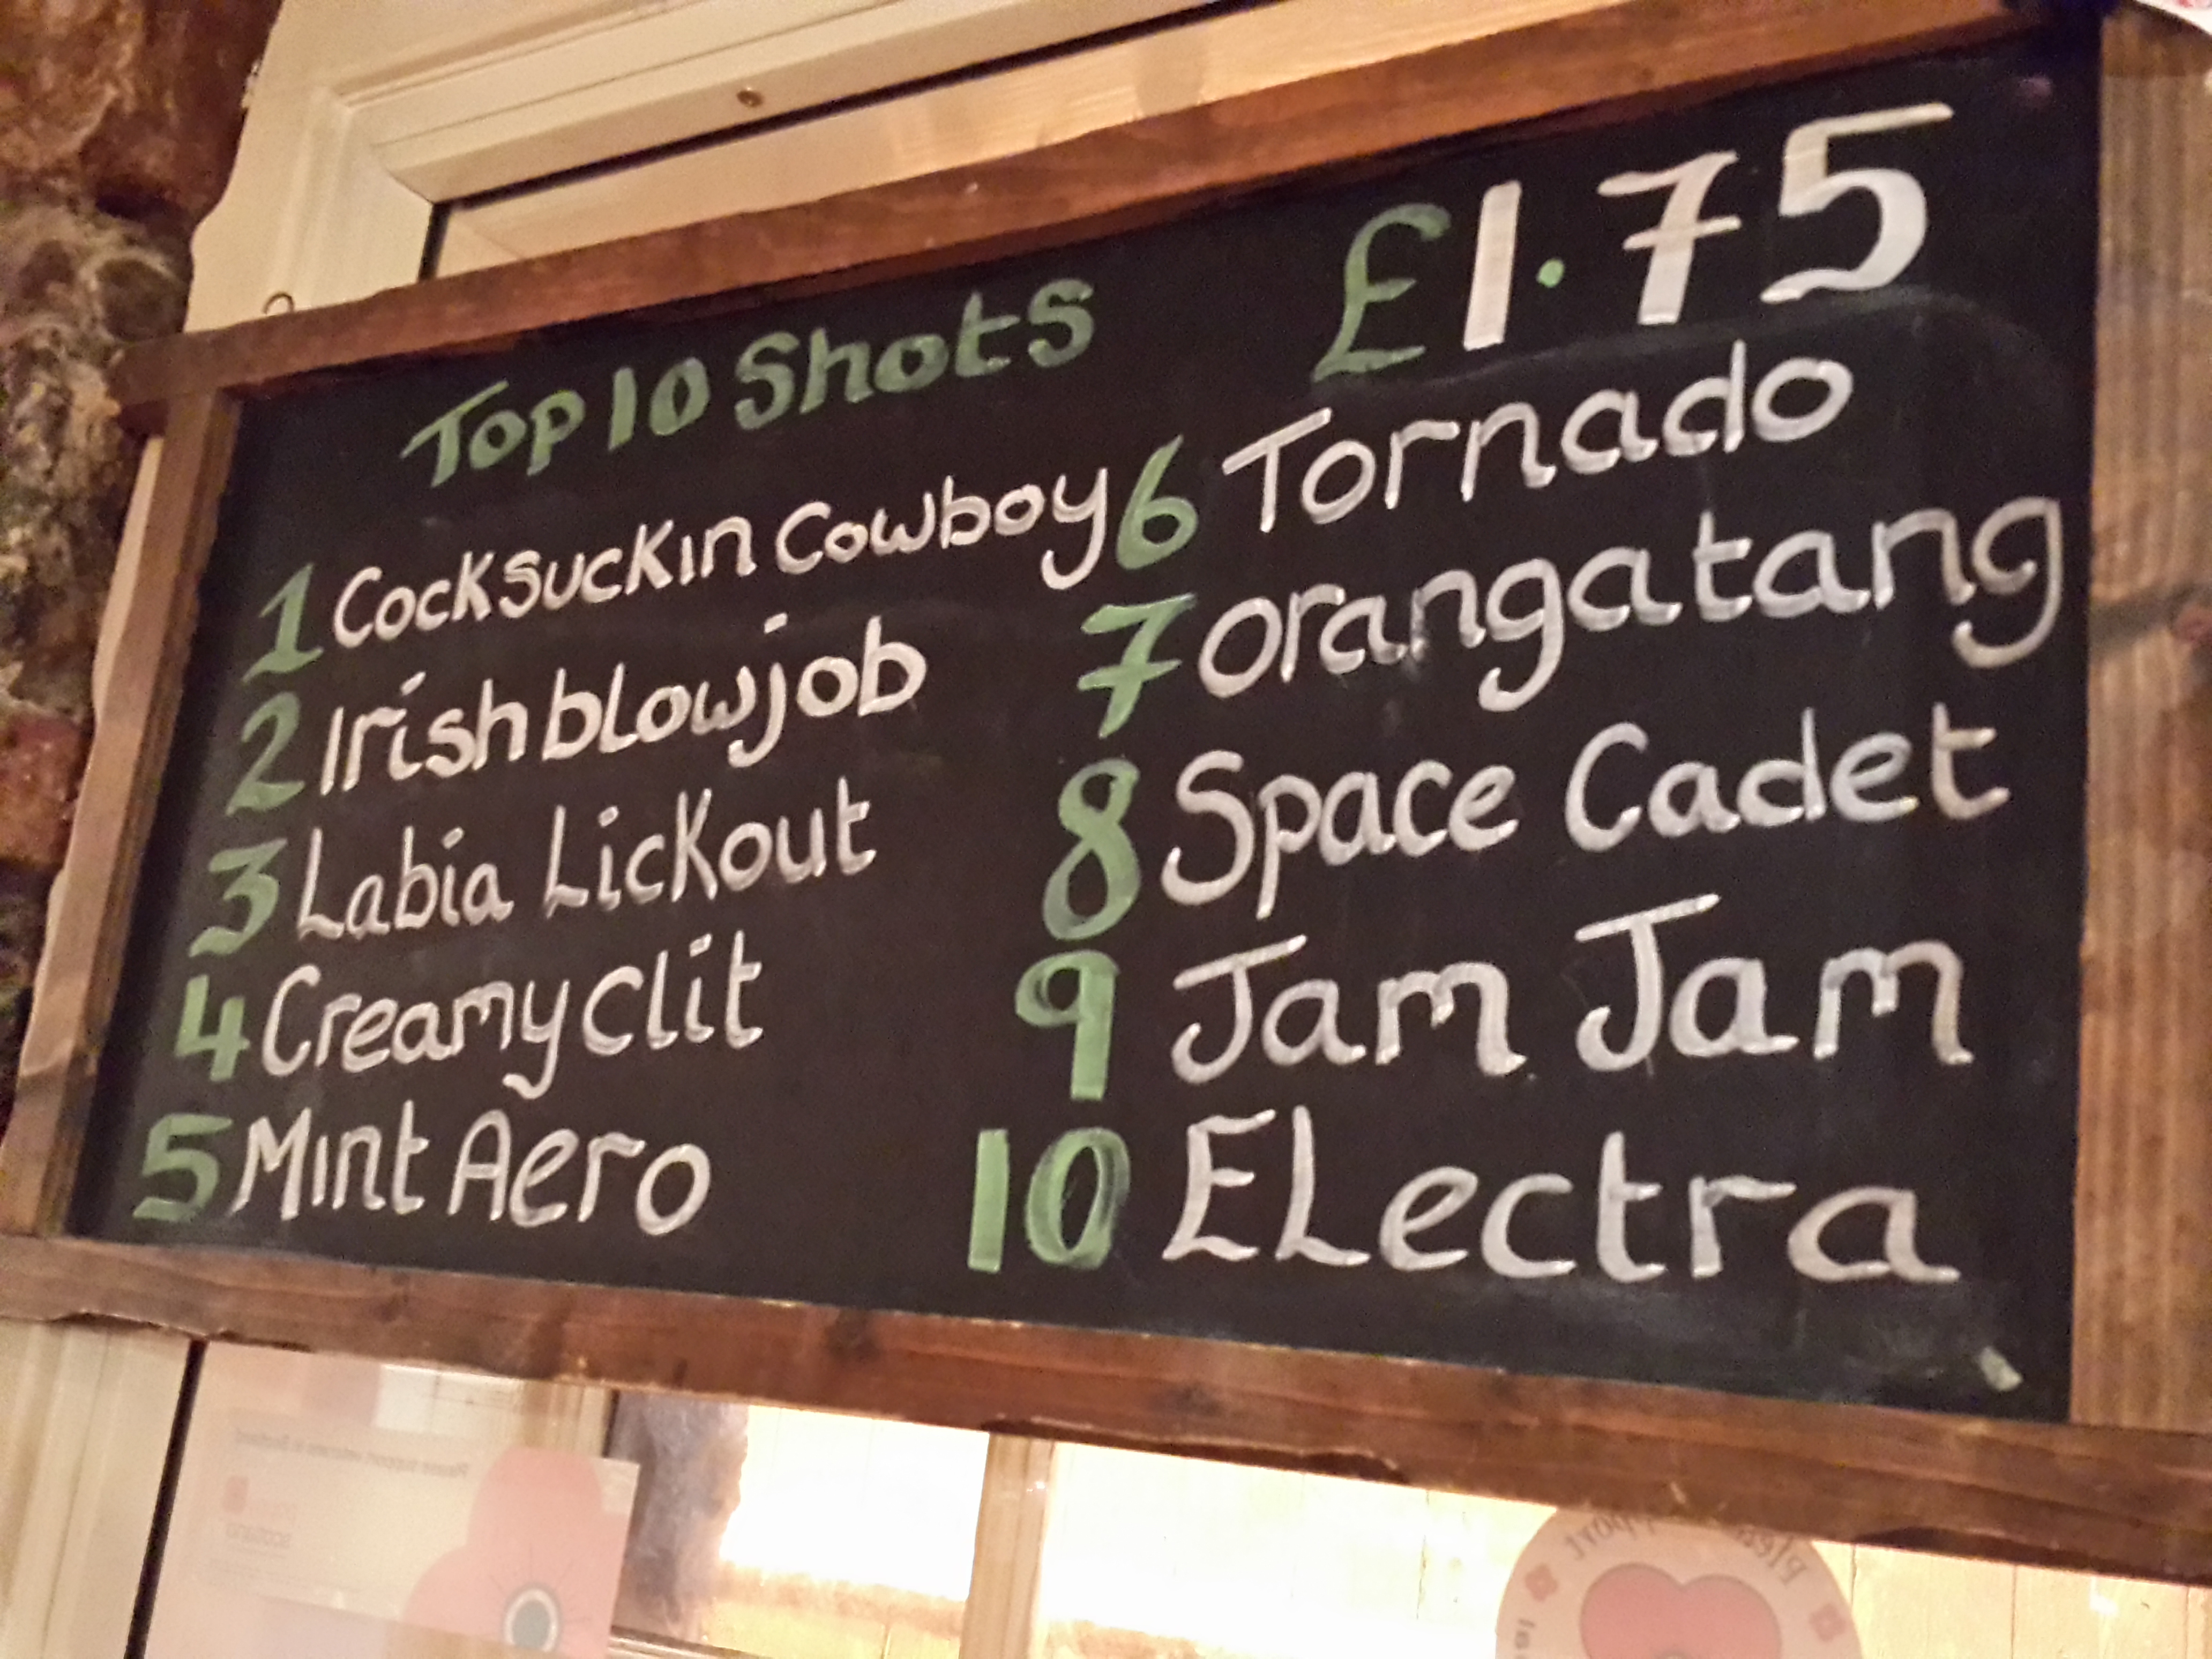 Top 10 Shots
£1.75
1 Cocksuckin Cowboy
2 Irish blowjob
3 Labia Lickout
4 Creamy clit
5 Mint Aero
6 Tornado
7 orangatang
8 Space Cadet
9 Jam Jam
10 ELectra
Please support